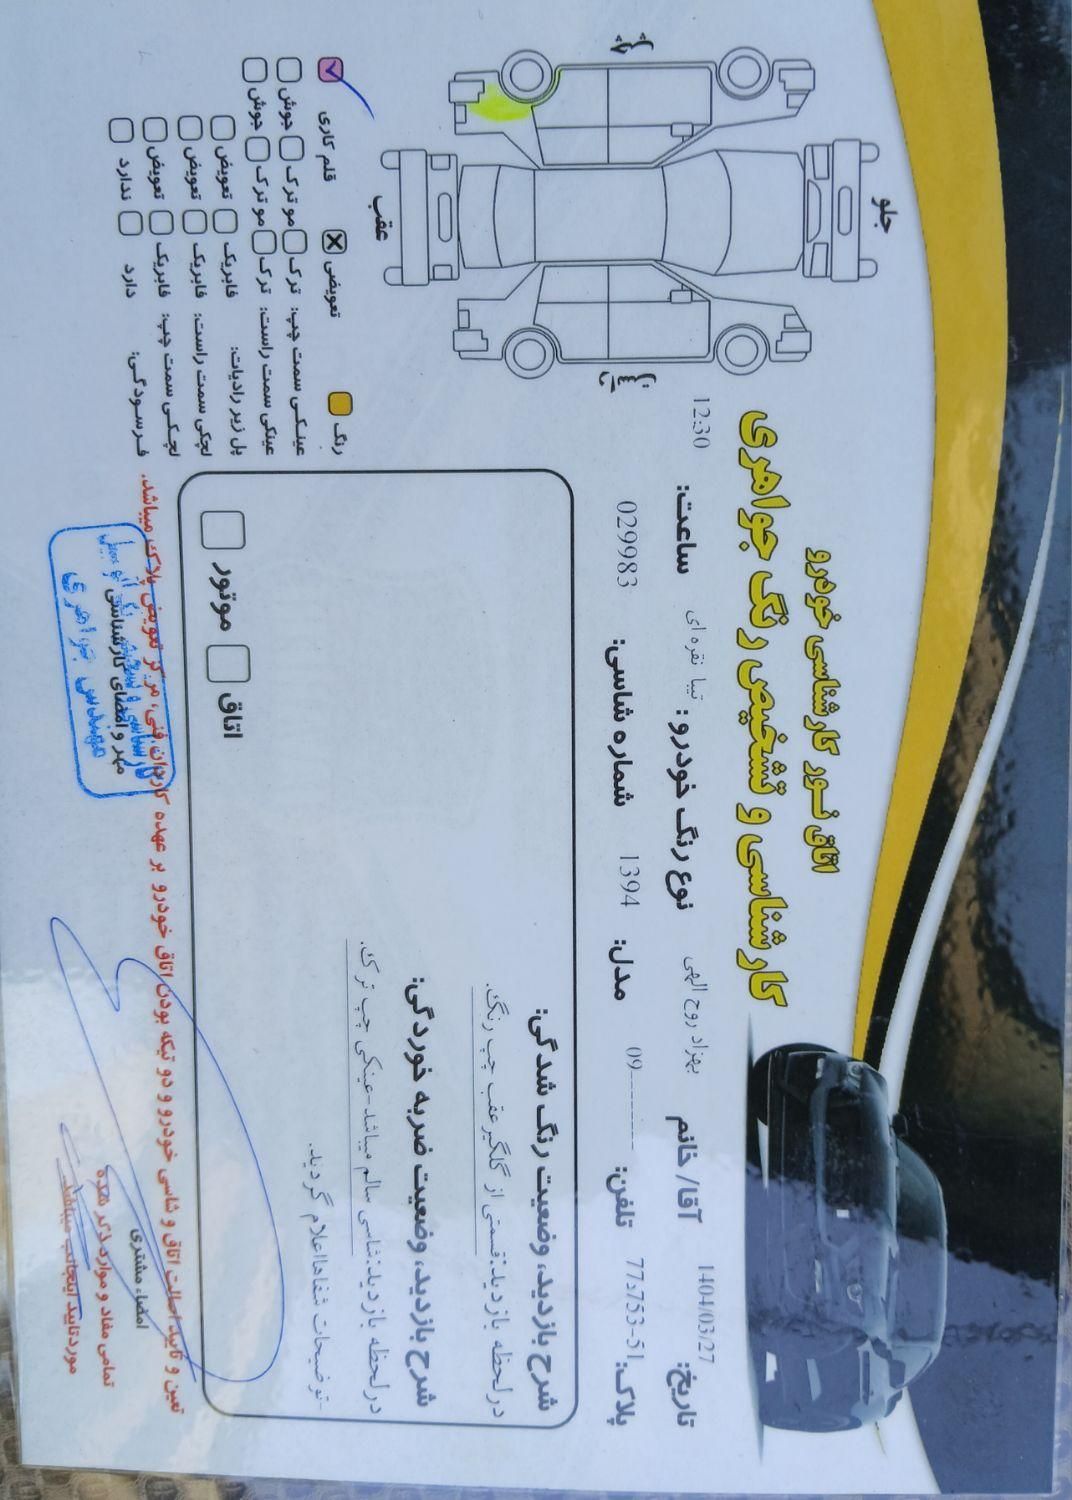 اتاق نور کارشناسی خودرو
کارشناسی و تشخیص رنگ جواهری
تاریخ: 1404/03/27 آقا/خانم بهزاد روح الهی نوع رنگ خودرو: تیبا نقره ای ساعت: 12:30
پلاک: 77د753-51 تلفن: 09---------- مدل: 1394 شماره شاسی: 029983
شرح بازدید، وضعیت رنگ شدگی:
در لحظه بازدید:قسمتی از گلگیر عقب چپ رنگ.
شرح بازدید، وضعیت ضربه خوردگی:
در لحظه بازدید:شاسی سالم میباشد-عینکی چپ ترک.
-توضیحات شفاها اعلام گردید.
اتاق موتور
جلو
عقب
چپ
رنگ تعویضی قلم کاری
عینکی سمت چپ: ترک مو ترک جوش
عینکی سمت راست: ترک مو ترک جوش
پل زیر رادیات: فابریک تعویض
لچکی سمت راست: فابریک تعویض
لچکی سمت چپ: فابریک تعویض
فرسودگی: دارد ندارد
تعین و تایید اصالت اتاق و شاسی خودرو و دو تیکه بودن اتاق خودرو بر عهده کاردان فنی، مرکز تعویض پلاک میباشد.
امضاء مشتری
تمامی مفاد و موارد ذکر شده
مورد تایید اینجانب میباشد.
مهر و امضای کارشناسی
مهندس جواهری